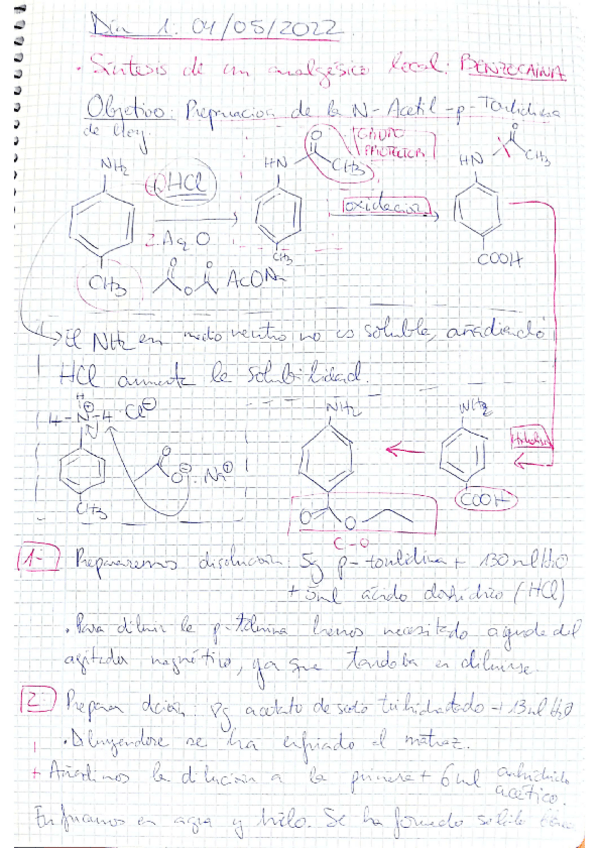 Día 1: 04/05/2022
· Síntesis de un analgésico local: BENZOCAINA
Objetivo: Preparación de la N-Acetil-p-Toluidina
de Hoy:
NH2
1) HCl
2. Ac2O
AcONa
CH3
HN
O
CH3
CH3
GRUPO
PROTECTOR
oxidación
HN
O
CH3
COOH
→ El NH2 en medio neutro no es soluble, añadiendo
HCl aumenta la solubilidad.
H
H-N-H Cl
CH3
O Na
NH2
O
O
C-O
NH2
COOH
1- Prepararemos disolución: 5g p-toluidina + 130 ml H2O
+ 5ml ácido clorhídrico (HCl)
· Para diluir la p-toluina hemos necesitado ayuda del
agitador magnético, ya que tardaba en diluirse.
2: Preparar dción: 8g acetato de sodio trihidratado + 13ml H2O
· Diluyendose se ha enfriado el matraz.
+ Añadimos la dilución a la primera + 6ml anhidrido
acético.
Enfriamos en agua y hielo. Se ha formado sólido